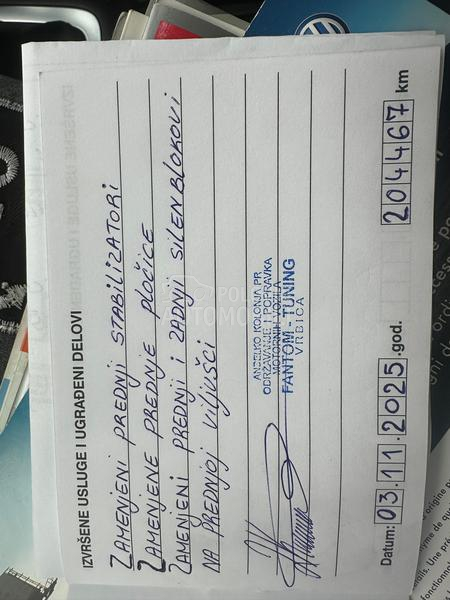 IZVRŠENE USLUGE I UGRAĐENI DELOVI
ZAMENJENI PREDNJI STABILIZATORI
ZAMENJENE PREDNJE PLOČICE
ZAMENJENI PREDNJI I ZADNJI SILEN BLOKOVI
NA PREDNJOJ VILJUŠCI
ANĐELKO KOLONJA PR
ODRŽAVANJE I POPRAVKA
MOTORNIH VOZILA
FANTOM - TUNING
VRBICA
Datum: 03.11.2025.god. 204467 km